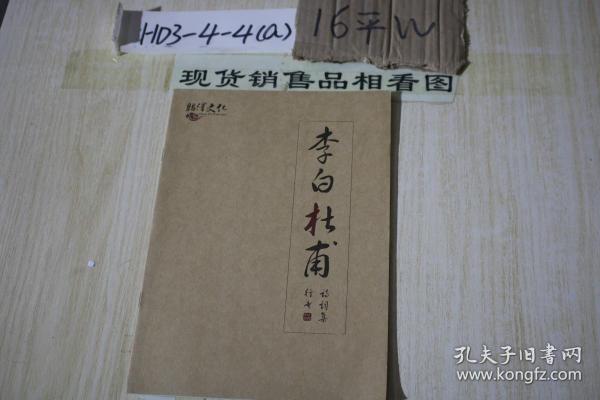 HD3-4-4(a)
16平W
现货销售品相看图
李白杜甫
诗词集
行书
孔夫子旧书网
www.kongfz.com